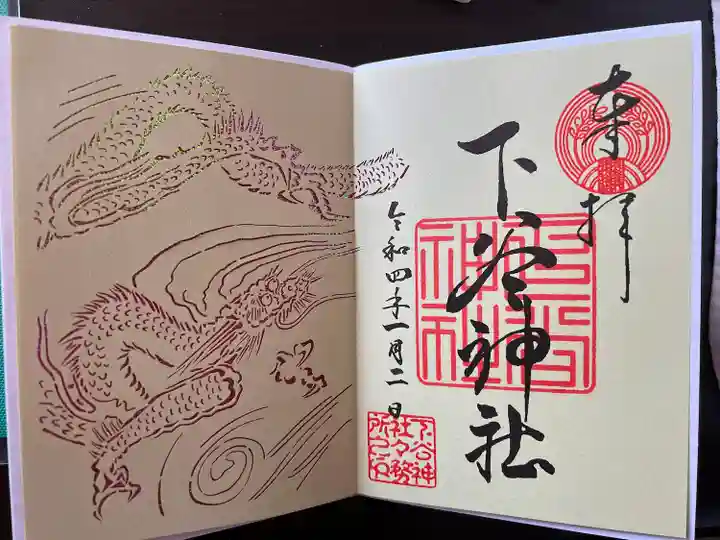 奉拝
下谷神社
下谷神社
令和四年一月二日
下谷神
社々務
所之印